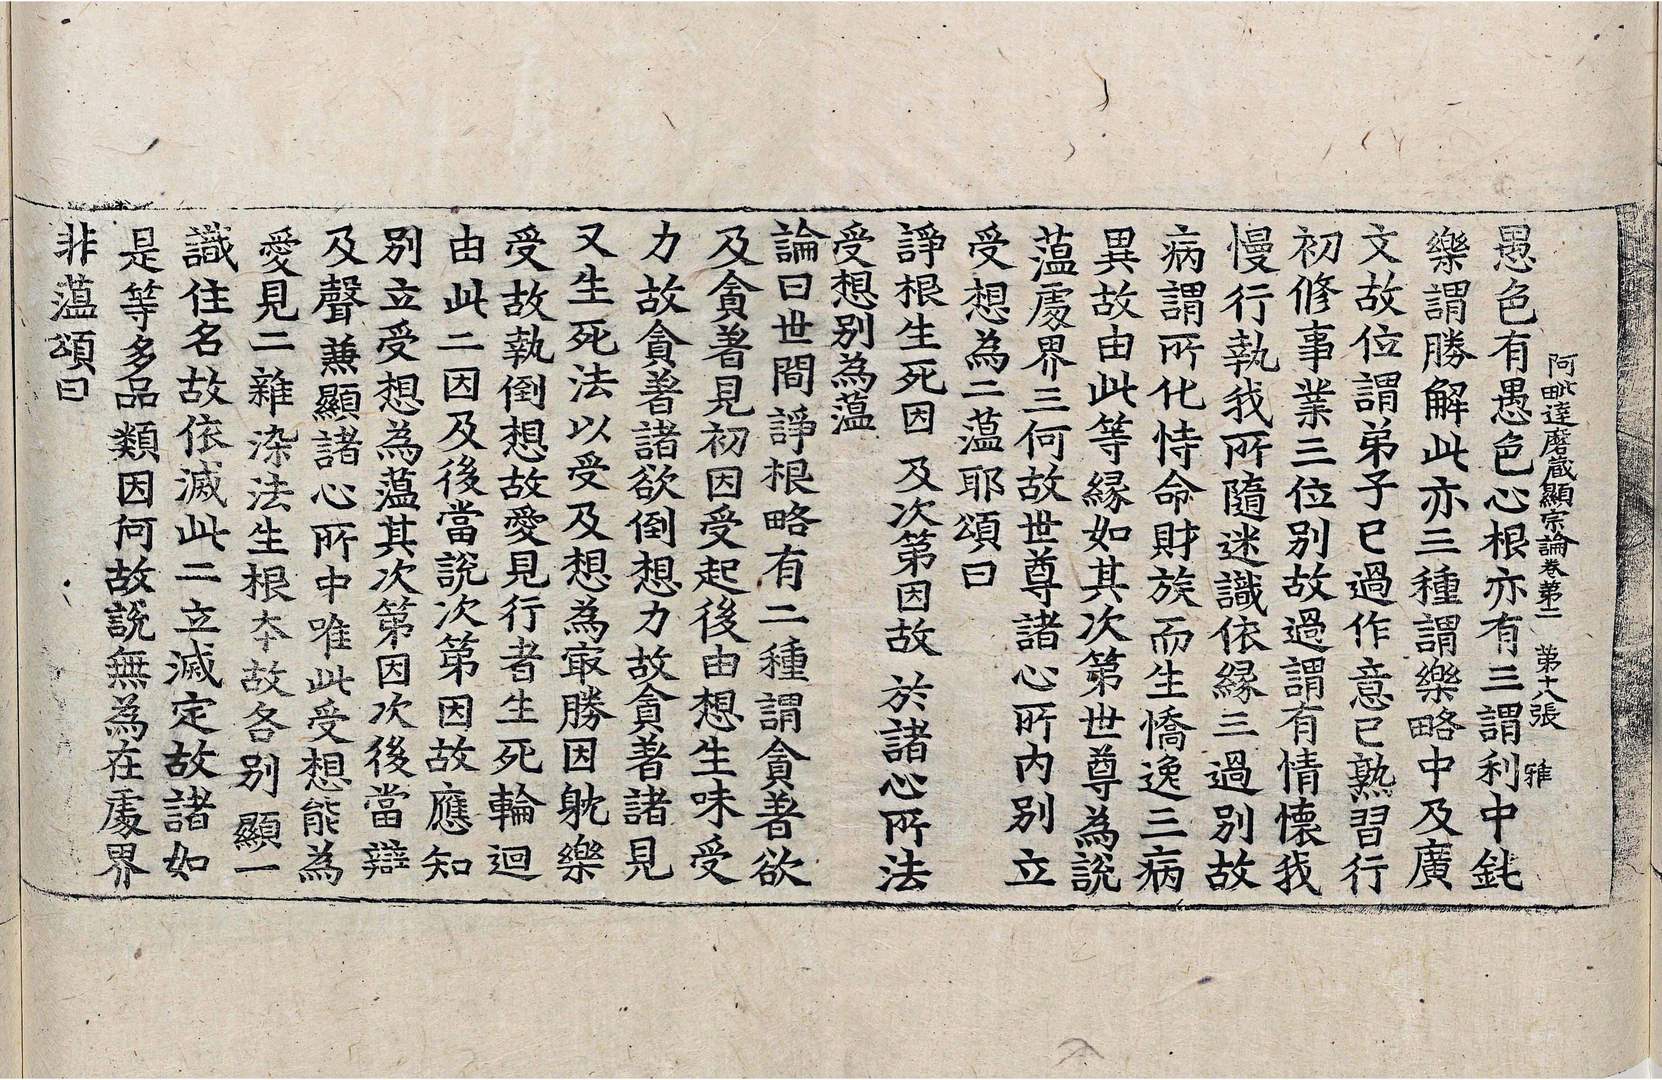 阿毗達磨藏顯宗論卷第二 第十八張 雅
愚色有愚色心根亦有三謂利中鈍
樂謂勝解此亦三種謂樂略中及廣
文故位謂弟子已過作意已熟習行
初修事業三位別故過謂有情懷我
慢行執我所隨迷識依縁三過別故
病謂所化恃命財族而生憍逸三病
異故由此等縁如其次第世尊為說
蕰處界三何故世尊諸心所内別立
受想為二蕰耶頌曰
諍根生死因 及次第因故 於諸心所法
受想別為蕰
論曰世間諍根略有二種謂貪著欲
及貪著見初因受起後由想生味受
力故貪著諸欲倒想力故貪著諸見
又生死法以受及想為㝡勝因躭樂
受故執倒想故愛見行者生死輪迴
由此二因及後當說次第因故應知
別立受想為蕰其次第因次後當辯
及聲兼顯諸心所中唯此受想能為
愛見二雜染法生根本故各別顯一
識住名故依滅此二立滅定故諸如
是等多品類因何故說無為在處界
非蕰頌曰